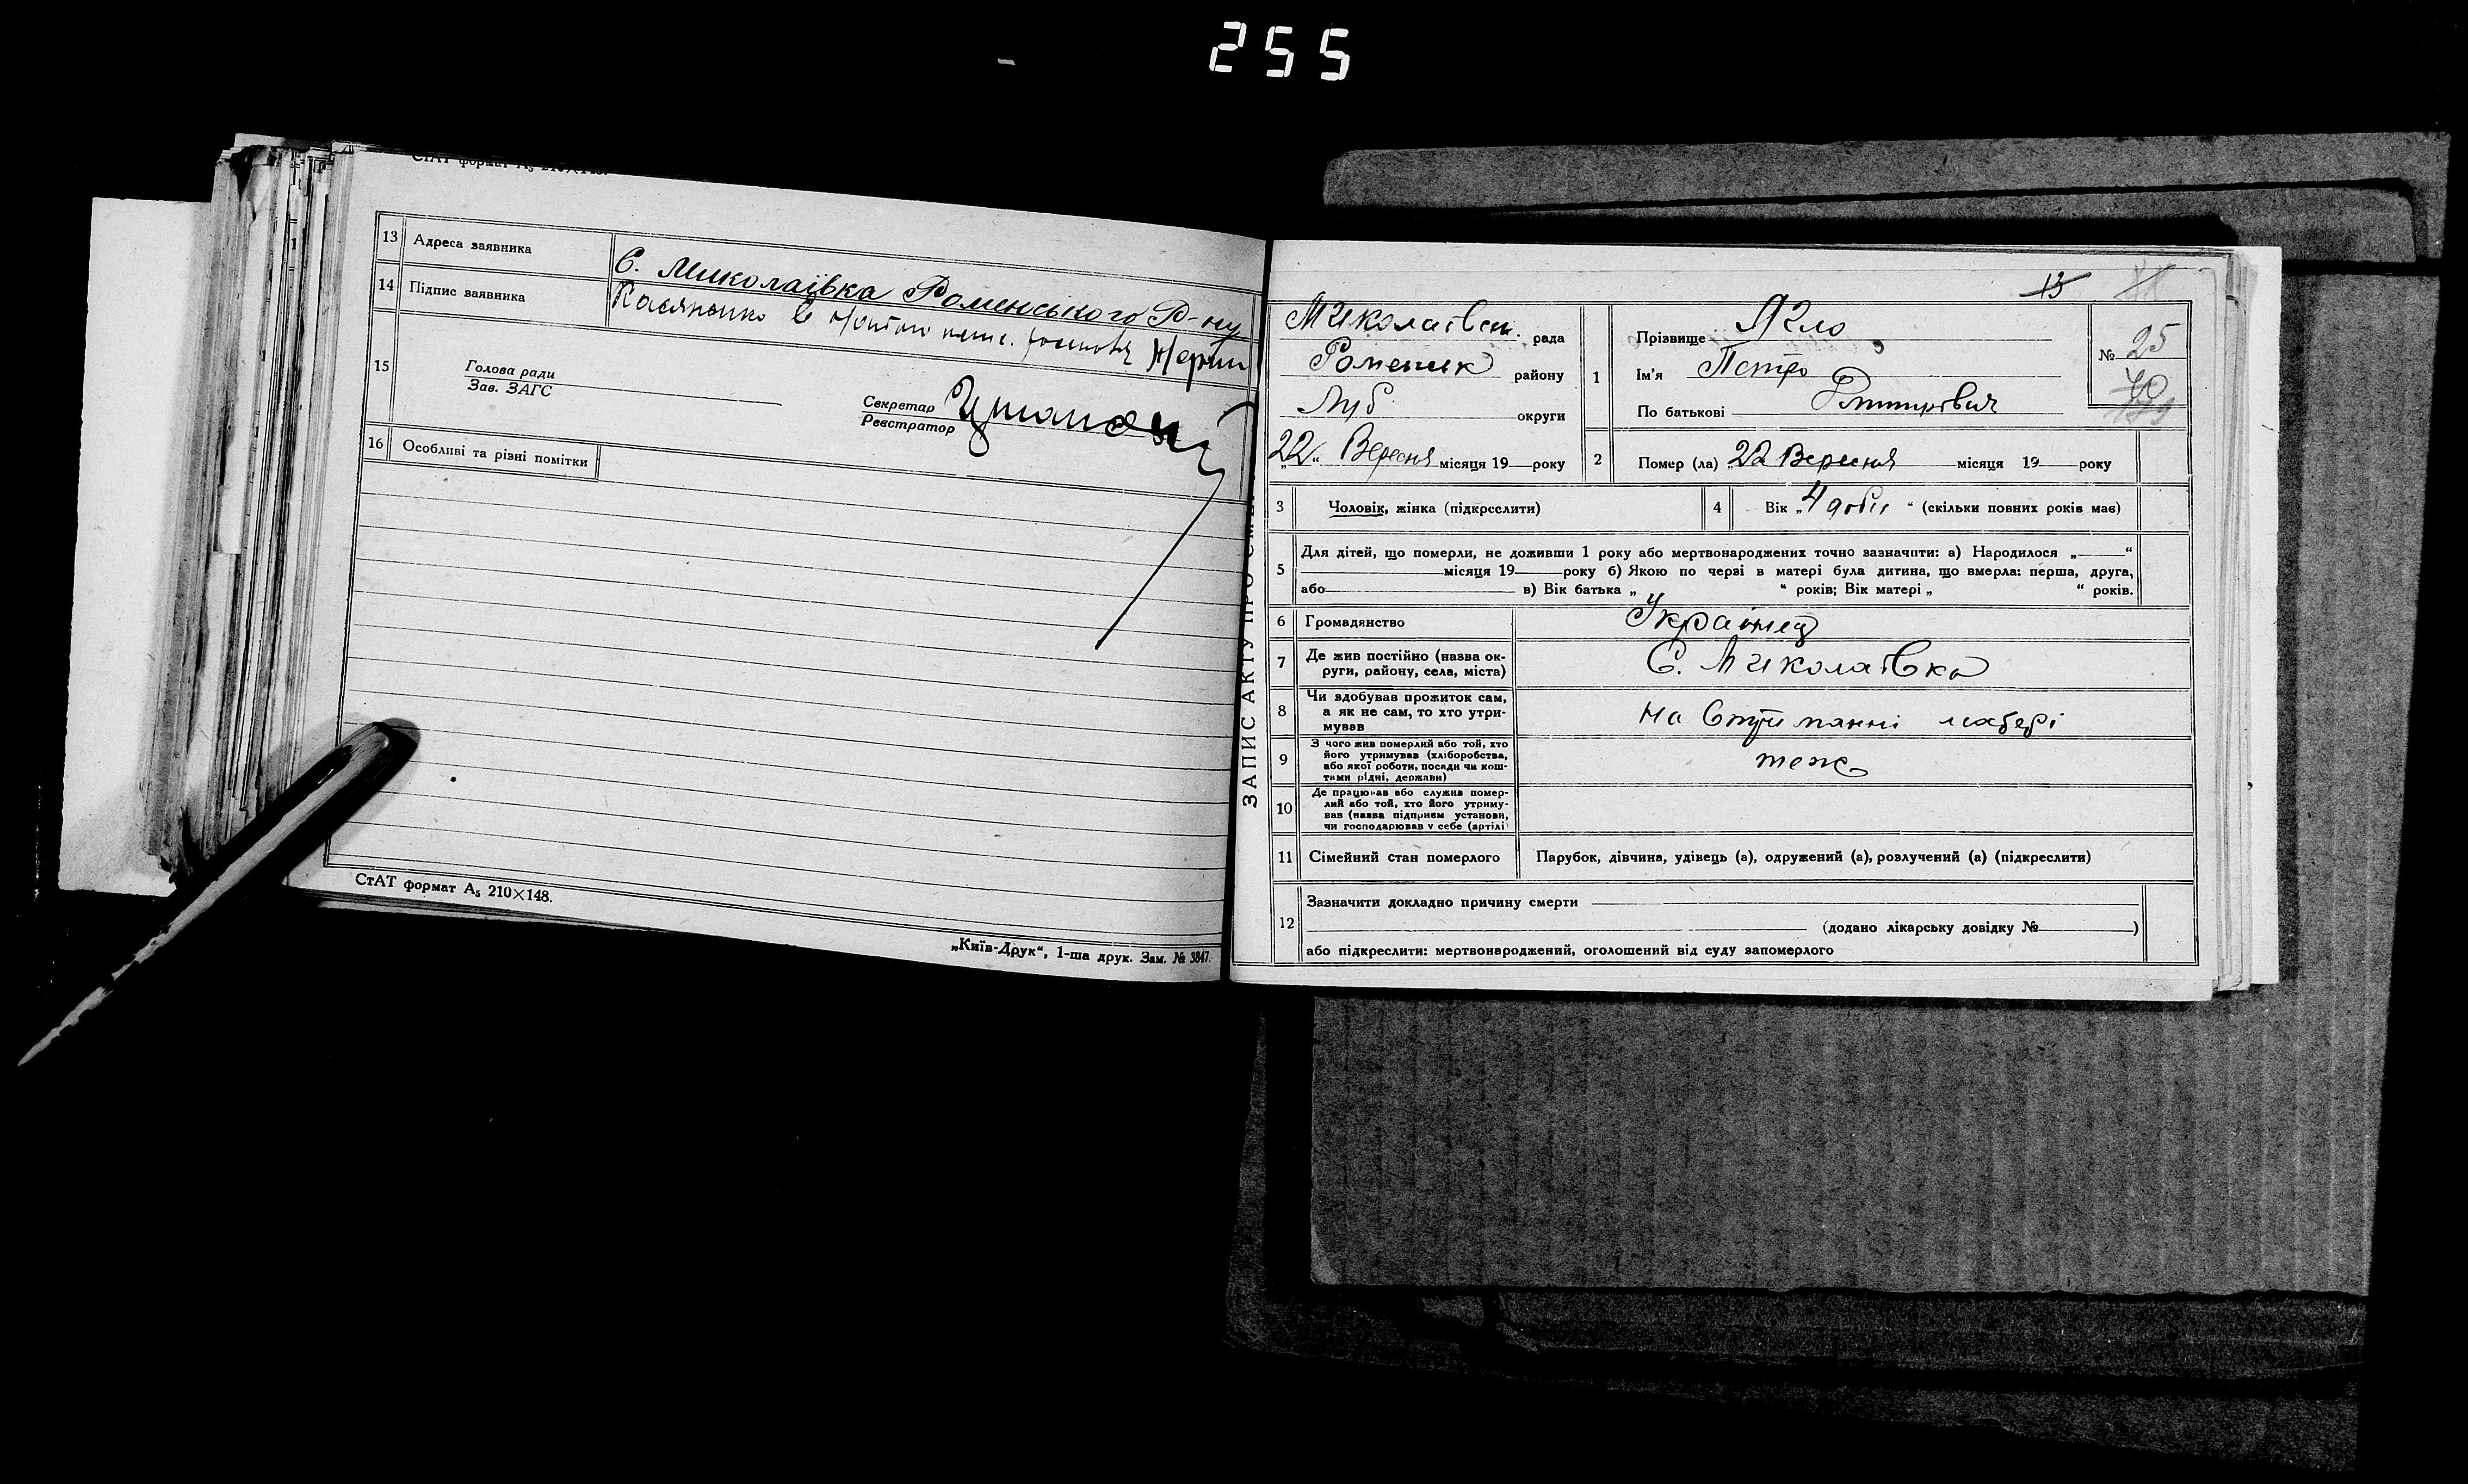 255
СтАТ формат А₅ 210×148.
13 Адреса заявника С. Миколаївка Роменського Р-ну
14 Підпис заявника Касяненко
15 Голова ради
Зав. ЗАГС
Секретар
Реєстратор
16 Особливі та різні помітки
СтАТ формат А₅ 210×148.
„Київ-Друк“, 1-ша друк. Зам. № 3847.
ЗАПИС АКТУ ПРО
13
Миколаївськ. рада
Роменск району
Луб округи
„22“ Вересня місяця 19 року
1 Прізвище
Ім'я Петро
По батькові Дмитрович
№ 25
2 Помер (ла) 22 Вересня місяця 19 року
3 Чоловік, жінка (підкреслити)
4 Вік „4 доби“ (скільки повних років має)
5 Для дітей, що померли, не доживши 1 року або мертвонароджених точно зазначити: а) Народилося „ “
місяця 19 року б) Якою по черзі в матері була дитина, що вмерла: перша, друга,
або в) Вік батька „ “ років; Вік матері „ “ років.
6 Громадянство Українец
7 Де жив постійно (назва ок-
руги, району, села, міста) С. Миколаївка
8 Чи здобував прожиток сам,
а як не сам, то хто утри-
мував на втриманні матері
9 З чого жив померлий або той, хто
його утримував (хліборобства,
або якої роботи, посади чи кош-
тами рідні, держави) теж
10 Де працював або служив помер-
лий або той, хто його утриму-
вав (назва підприєм установи,
чи господарював у себе (артілі
11 Сімейний стан померлого Парубок, дівчина, удівець (а), одружений (а), розлучений (а) (підкреслити)
12 Зазначити докладно причину смерти
(додано лікарську довідку № )
або підкреслити: мертвонароджений, оголошений від суду запомерлого